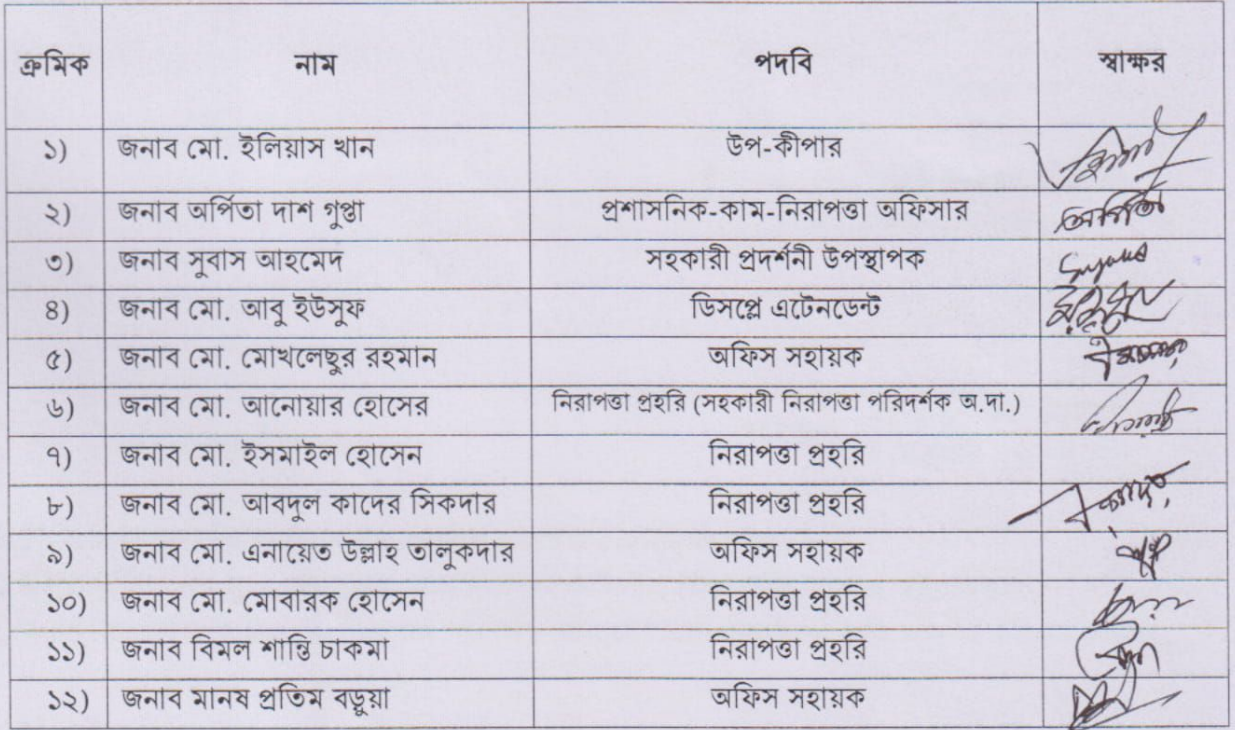 ক্রমিক নাম পদবি স্বাক্ষর
১) জনাব মো. ইলিয়াস খান উপ-কীপার
২) জনাব অর্পিতা দাশ গুপ্তা প্রশাসনিক-কাম-নিরাপত্তা অফিসার অর্পিতা
৩) জনাব সুবাস আহমেদ সহকারী প্রদর্শনী উপস্থাপক
৪) জনাব মো. আবু ইউসুফ ডিসপ্লে এটেনডেন্ট
৫) জনাব মো. মোখলেছুর রহমান অফিস সহায়ক
৬) জনাব মো. আনোয়ার হোসের নিরাপত্তা প্রহরি (সহকারী নিরাপত্তা পরিদর্শক অ.দা.)
৭) জনাব মো. ইসমাইল হোসেন নিরাপত্তা প্রহরি
৮) জনাব মো. আবদুল কাদের সিকদার নিরাপত্তা প্রহরি
৯) জনাব মো. এনায়েত উল্লাহ তালুকদার অফিস সহায়ক
১০) জনাব মো. মোবারক হোসেন নিরাপত্তা প্রহরি
১১) জনাব বিমল শান্তি চাকমা নিরাপত্তা প্রহরি
১২) জনাব মানষ প্রতিম বড়ুয়া অফিস সহায়ক